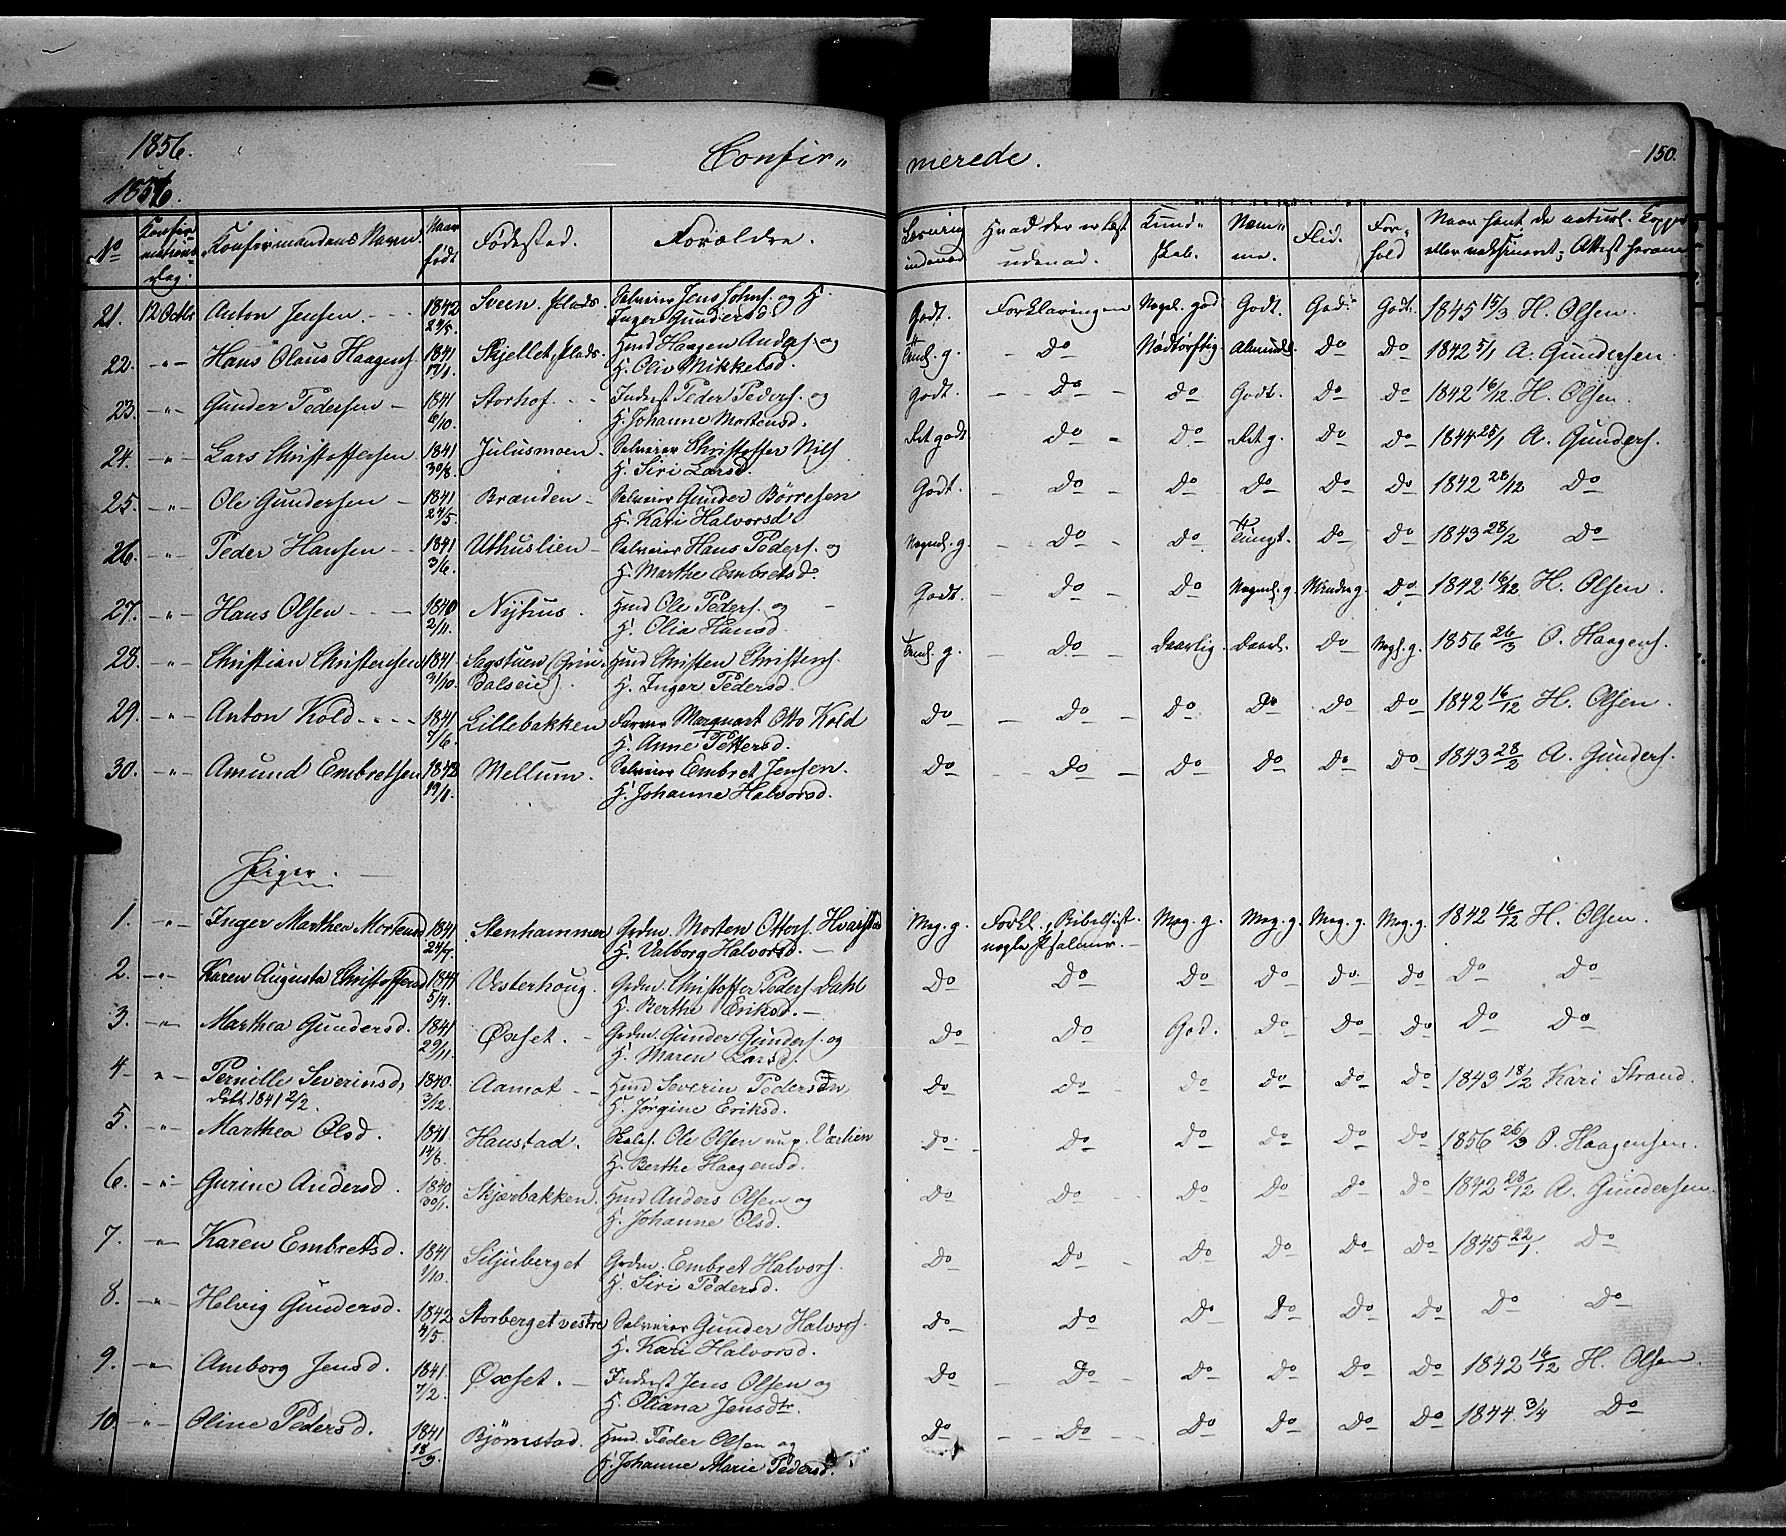 1856.
Confir„
merede.
150.
1856.
No
Konfirmations Dag:
Konfirmandens Navn.
Naar født
Fødested.
Forældre.
Læsning indenad
Hvad der er læst udenad.
Kund-skab.
Nem„me.
Flid.
For-hold
Naar havt de naturl. Kopper eller vaksineret; Attest herom
21. 12 Octbr Anton Jensen. 1842 24/5. Sveen Plads. Selveier Jens Johns. og H. Inger Gundersd. Godt. Forklaringen Nogenl. god Godt. God. Godt. 1845 15/3 H. Olsen.
22. -"- Hans Olaus Haagens. 1841 17/11 Skjellet Plads. Hmd Haagen Anders. og H. Oliv Mikkelsd. g. - Do Nødtørftig. Almindl. Do Do 1842 5/1 A. Gundersen.
23. -"- Gunder Pedersen - 1841 6/10. Storhof. - - Inderst Peder Peders. og H. Johanne Mortensd. Godt. - Do - Do Godt. Do Do 1842 16/12 H. Olsen.
24. -"- Lars Christoffersen 1841 30/8. Julusmoen. Selveier Christoffer Nils. H. Siri Larsd. Ret godt Do - Do Ret g. Do Do 1844 25/1 A. Gunders.
25. -"- Ole Gundersen - 1841 24/5. Brænden - Selveier Gunder Børresen H. Kari Halvorsd. Godt. - Do - Do Do Do Do 1842 28/12 Do
26. -"- Peder Hansen - - 1841 3/6. Uthuslien - Selveier Hans Peders. og H. Marthe Embretsd. Nogenl. g. - Do - Do Tungt. Do Do 1843 28/2 Do
27. -"- Hans Olsen - - - 1840 2/11. Nyhus. Hmd Ole Peders. og H. Olia Hansd. Godt. - Do - Do Nogenl. g. Mindre g. Do 1842 16/12 H. Olsen.
28. -"- Christian Christensen 1841 31/10. Sagstuen (Grundalseie). Hmd Christen Christens. H. Inger Pedersd. g. - Do - Daarlig. Daarl. Do Nogl. g. 1856 26/3 O. Haagens.
29. -"- Anton Kold. - - - 1841 7/6. Lillebakken Farver Marquart Otto Kold H. Anne Pettersd. Do - Do - Do Do Do Do 1842 16/12 H. Olsen.
30. -"- Amund Embretsen 1842 19/1. Mellum. Selveier Embret Jensen. H. Johanne Halvorsd. Do - - Do - Do Do Do Do 1843 28/2 A. Gunders.
Piger.
1. -"- Inger Marthea Mortensd 1841 24/7. Stenhammer Grdm. Morten Ottors. Hvarstad H. Valborg Halvorsd. - Meg. g. Forkl., Bibelhist. nogle Psalmer. - Meg. g. Meg. g. Meg. g. Meg. g. 1842 16/12 H. Olsen.
2. -"- Karen Augusta Christoffersd 1841 5/4. Vesterhoug. Grdm. Christoffer Peders. Dahl H. Berthe Eriksd. - Do Do Do Do Do Do Do Do
3. -"- Marthea Gundersd. 1841 29/11. Øxset. - Grdm. Gunder Gunders. og H. Maren Larsd. Do Do God. Do Do Do Do Do
4 -"- Pernille Severinsd, Døbt 1841 2/2. 1840. 3/12. Aamot - - Hmd Severin Pedersen, H. Jørgine Eriksd. Do Do Do Do Do Do 1843 18/2 Kari Strand.
5. -"- Marthea Olsd. 1841. 14/8. Haustad. Skolel. Ole Olsen nu p. Væslien H. Berthe Haagensd. Do - Do Do Do Do Do 1856 26/3 O. Haagensen.
6. -"- Gurine Andersd. 1840 30/1. Skjærbakken. Hmd Anders Olsen og H. Johanne Olsd. Do Do - Do Do Do Do 1842 28/12 A. Gundersen.
7. -"- Karen Embretsd. 1841 9/10. Siljuberget Grdm. Embret Halvors. H. Siri Pedersd. Do Do - Do Do Do Do 1845 22/1. Do
8. -"- Helvig Gundersd. 1842 4/5. Storberget vestre Selveier Gunder Halvors. H. Kari Halvorsd. Do Do Do Do Do Do Do Do
9. -"- Amborg Jensd. 1841. 7/2. Øxset. - Inderst Jens Olsen og H. Oliana Jensdtr. Do - Do - Do Do Do Do 1842 16/12 H. Olsen.
10. -"- Oline Pedersd. 1841 18/9. Bjørnstad. Hmd. Peder Olsen og H. Johanne Marie Pedersd. Do - - Do - - Do Do Do Do 1844. 3/4 Do